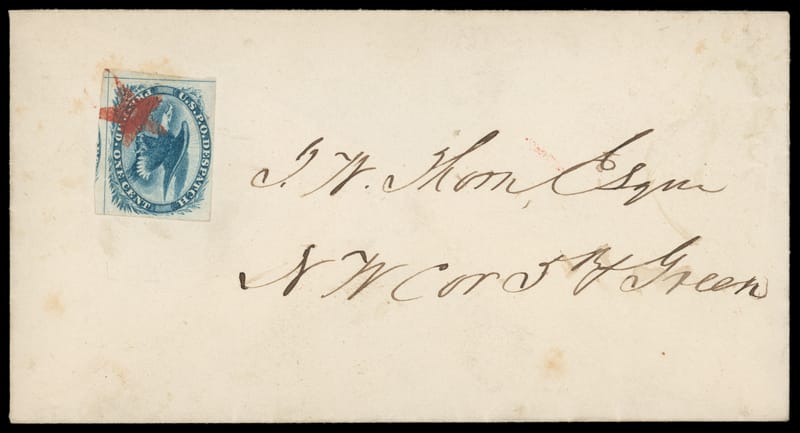 U.S.P.O. DESPATCH
PRE-PAID. ONE CENT
J. W. Thorn, Esqur
N W. Cor 5th & Green